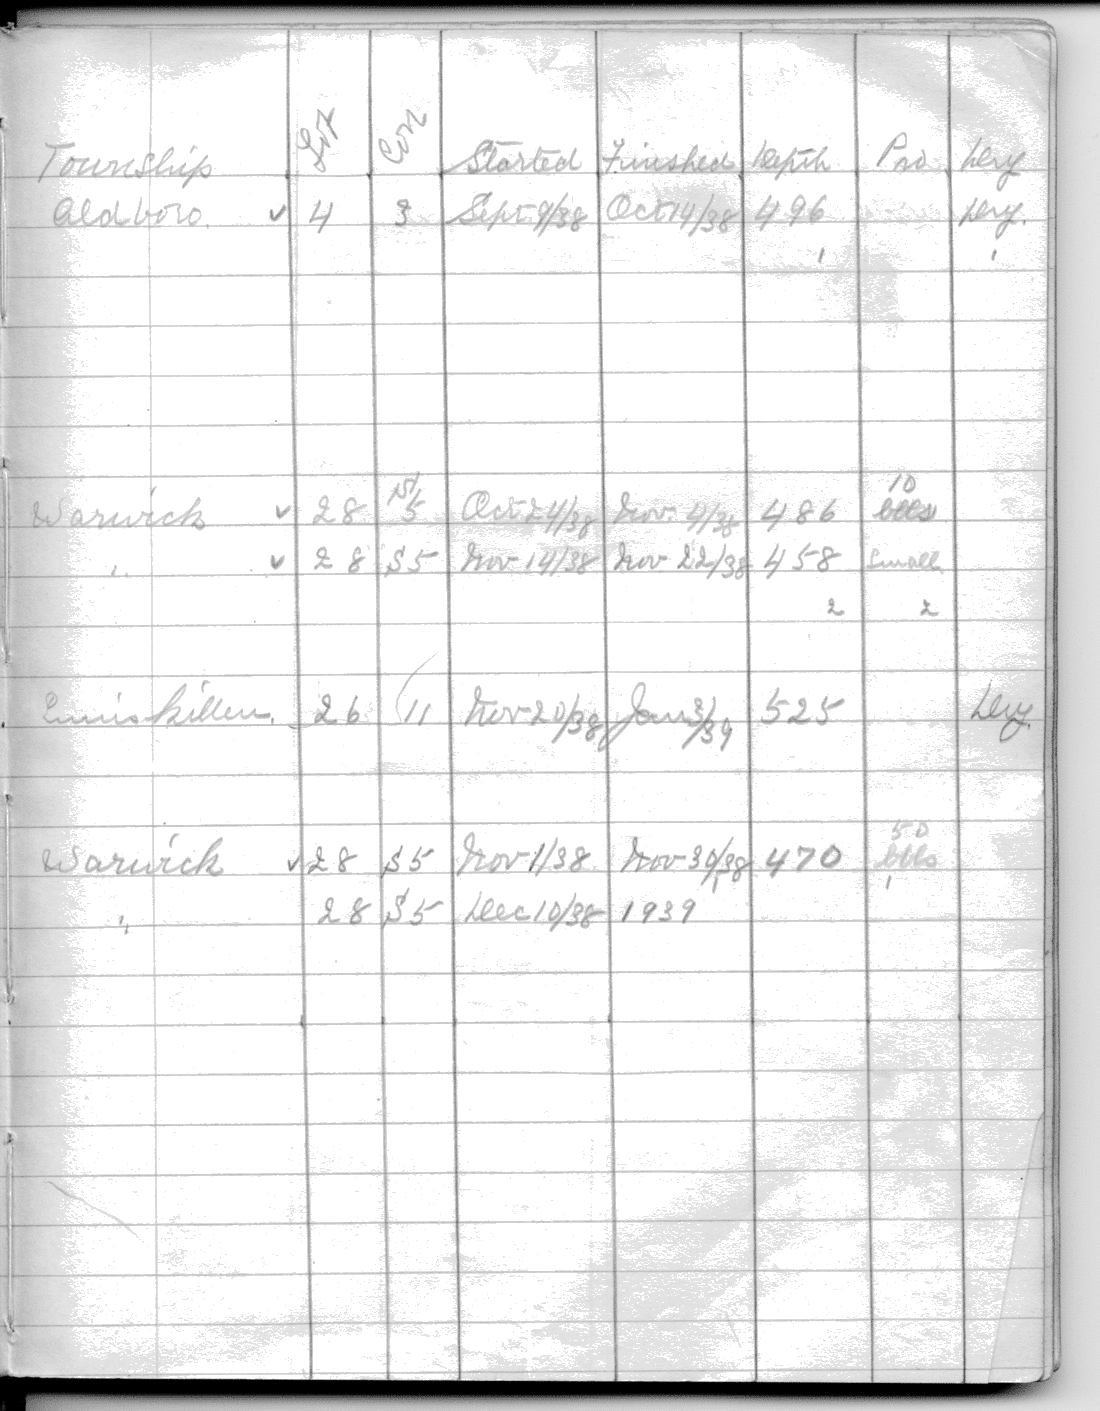 Township Lot Con Started Finished Depth Pro Dry
Aldboro. ✓ 4 3 Sept 9/38 Oct 14/38 496 Dry.
1 1
Warwick ✓ 28 N 5 Oct 24/38 Nov. 4/38 486 10 bbls
" ✓ 28 S 5 Nov 14/38 Nov 22/38 458 Small
2 2
Enniskillen. 26 11 Nov 20/38 Jan 3/39 525 Dry.
Warwick ✓ 28 S 5 Nov 1/38 Nov 30/38 470 50 bbls
1 1
" 28 S 5 Dec 10/38 1939